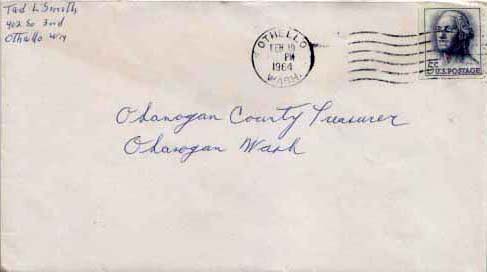 Tad L Smith
402 So 3rd
Othello Wn
OTHELLO
FEB 19
PM
1964
WASH.
5c
U.S. POSTAGE
Okanogan County Treasurer
Okanogan Wash